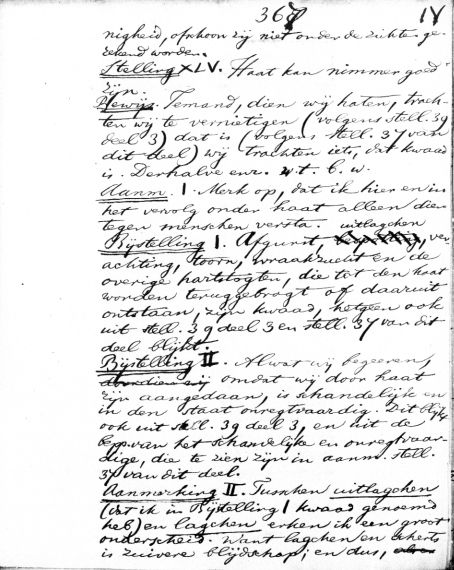 367 IV
nigheid, ofschoon zij niet onder de ziekten ge-
rekend worden.
Stelling XLV. Haat kan nimmer goed
zijn.
Bewijs. Iemand, dien wij haten, trach-
ten wij te vernietigen (volgens stell. 39
deel 3) dat is (volgens stell. 37 van
dit deel) wij trachten iets, dat kwaad
is. Derhalve enz. w. t. b. w.
Aanm. I. Merk op, dat ik hier en in
het vervolg onder haat alleen dien
tegen menschen versta.
uitlagchen
Bijstelling I. Afgunst, ver-
achting, toorn, wraakzucht en de
overige hartstogten, die tot den haat
worden teruggebragt of daaruit
ontstaan, zijn kwaad, hetgeen ook
uit stell. 39 deel 3 en stell. 37 van dit
deel blijkt.
Bijstelling II. Al wat wij begeeren,
omdat wij door haat
zijn aangedaan, is schandelijk en
in den staat onregtvaardig. Dit blijkt
ook uit stell. 39 deel 3, en uit de
bepp. van het schandelijke en onregtvaar-
dige, die te zien zijn in aanm. stell.
37 van dit deel.
Aanmerking II. Tusschen uitlagchen
(dat ik in Bijstelling I kwaad genoemd
heb) en lagchen erken ik een groot
onderscheid. Want lagchen en scherts
is zuivere blijdschap; en dus,